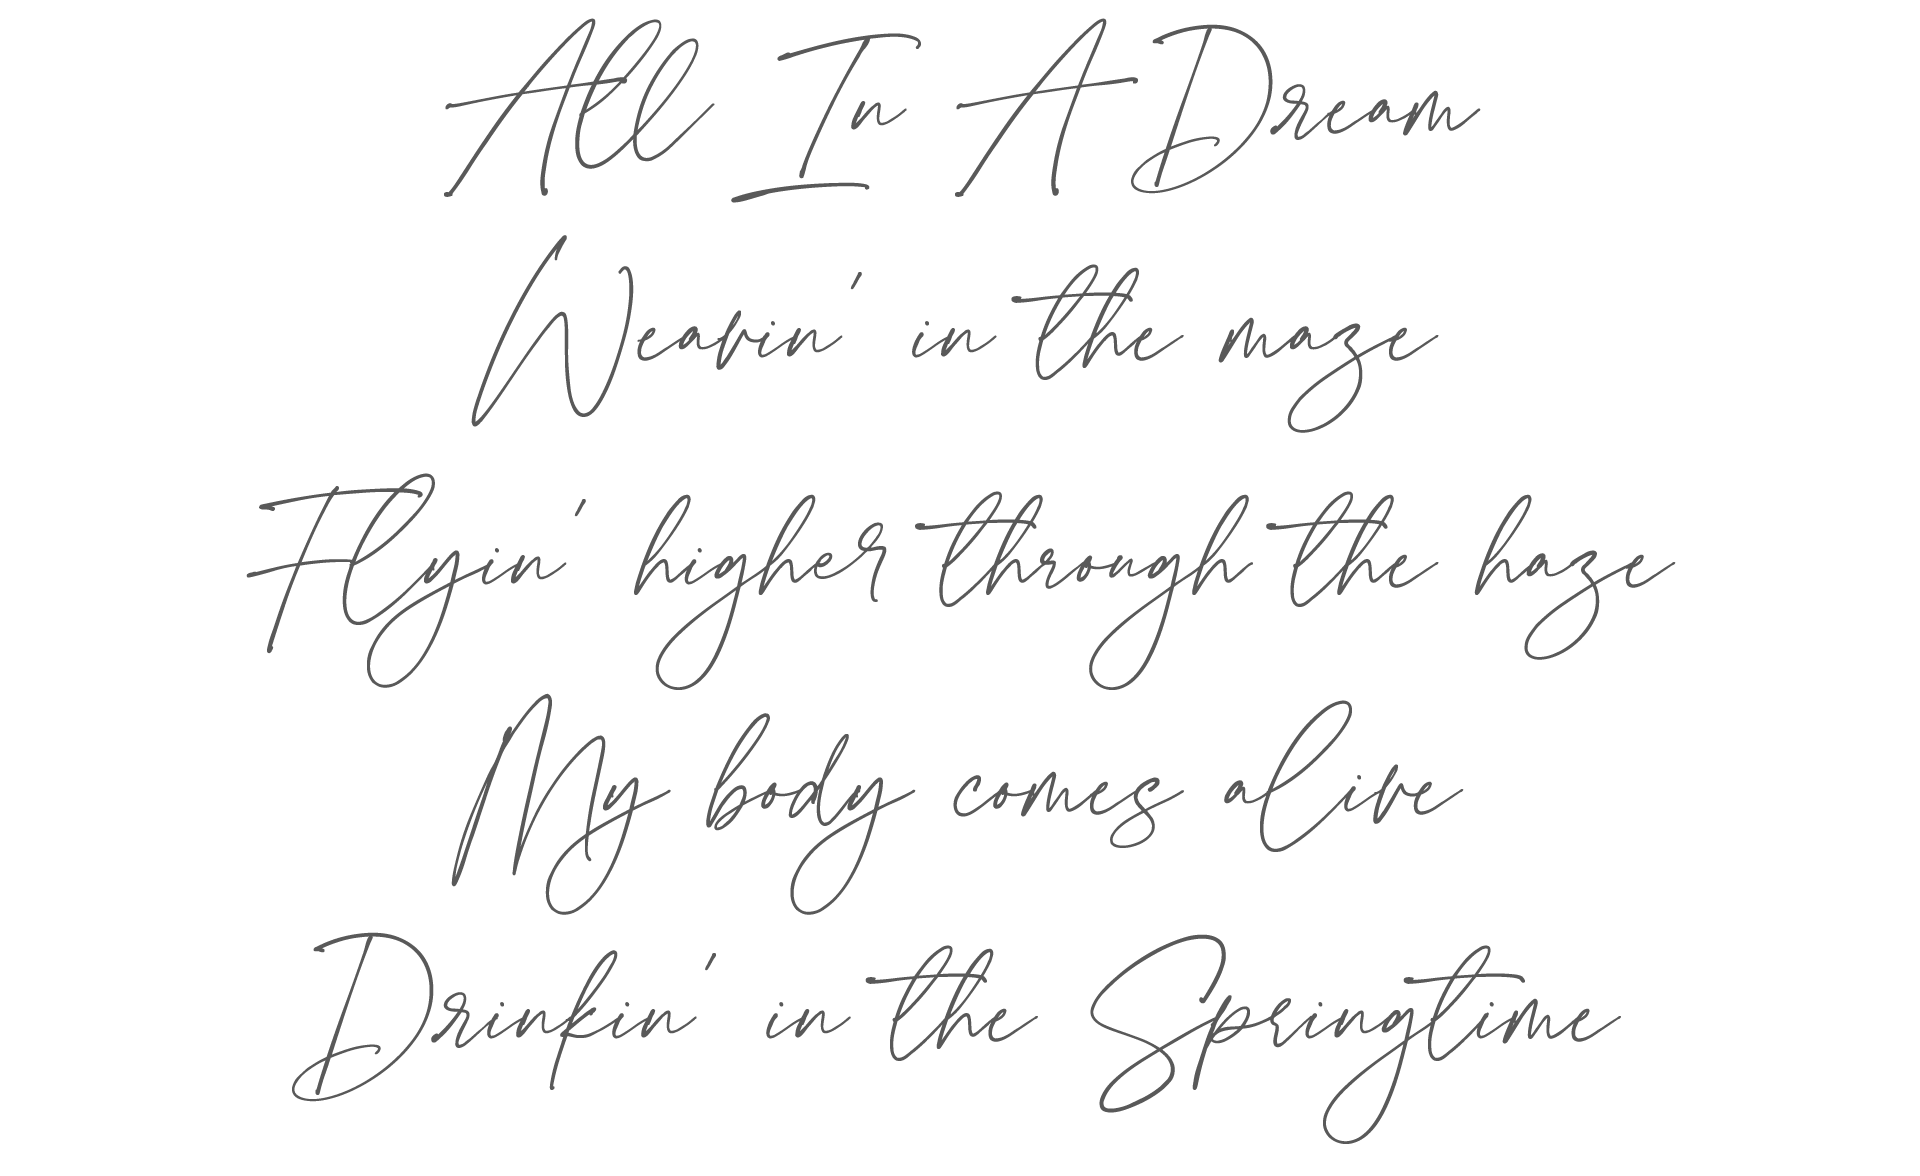 All In A Dream
Weavin' in the maze
Flyin' higher through the haze
My body comes alive
Drinkin' in the Springtime